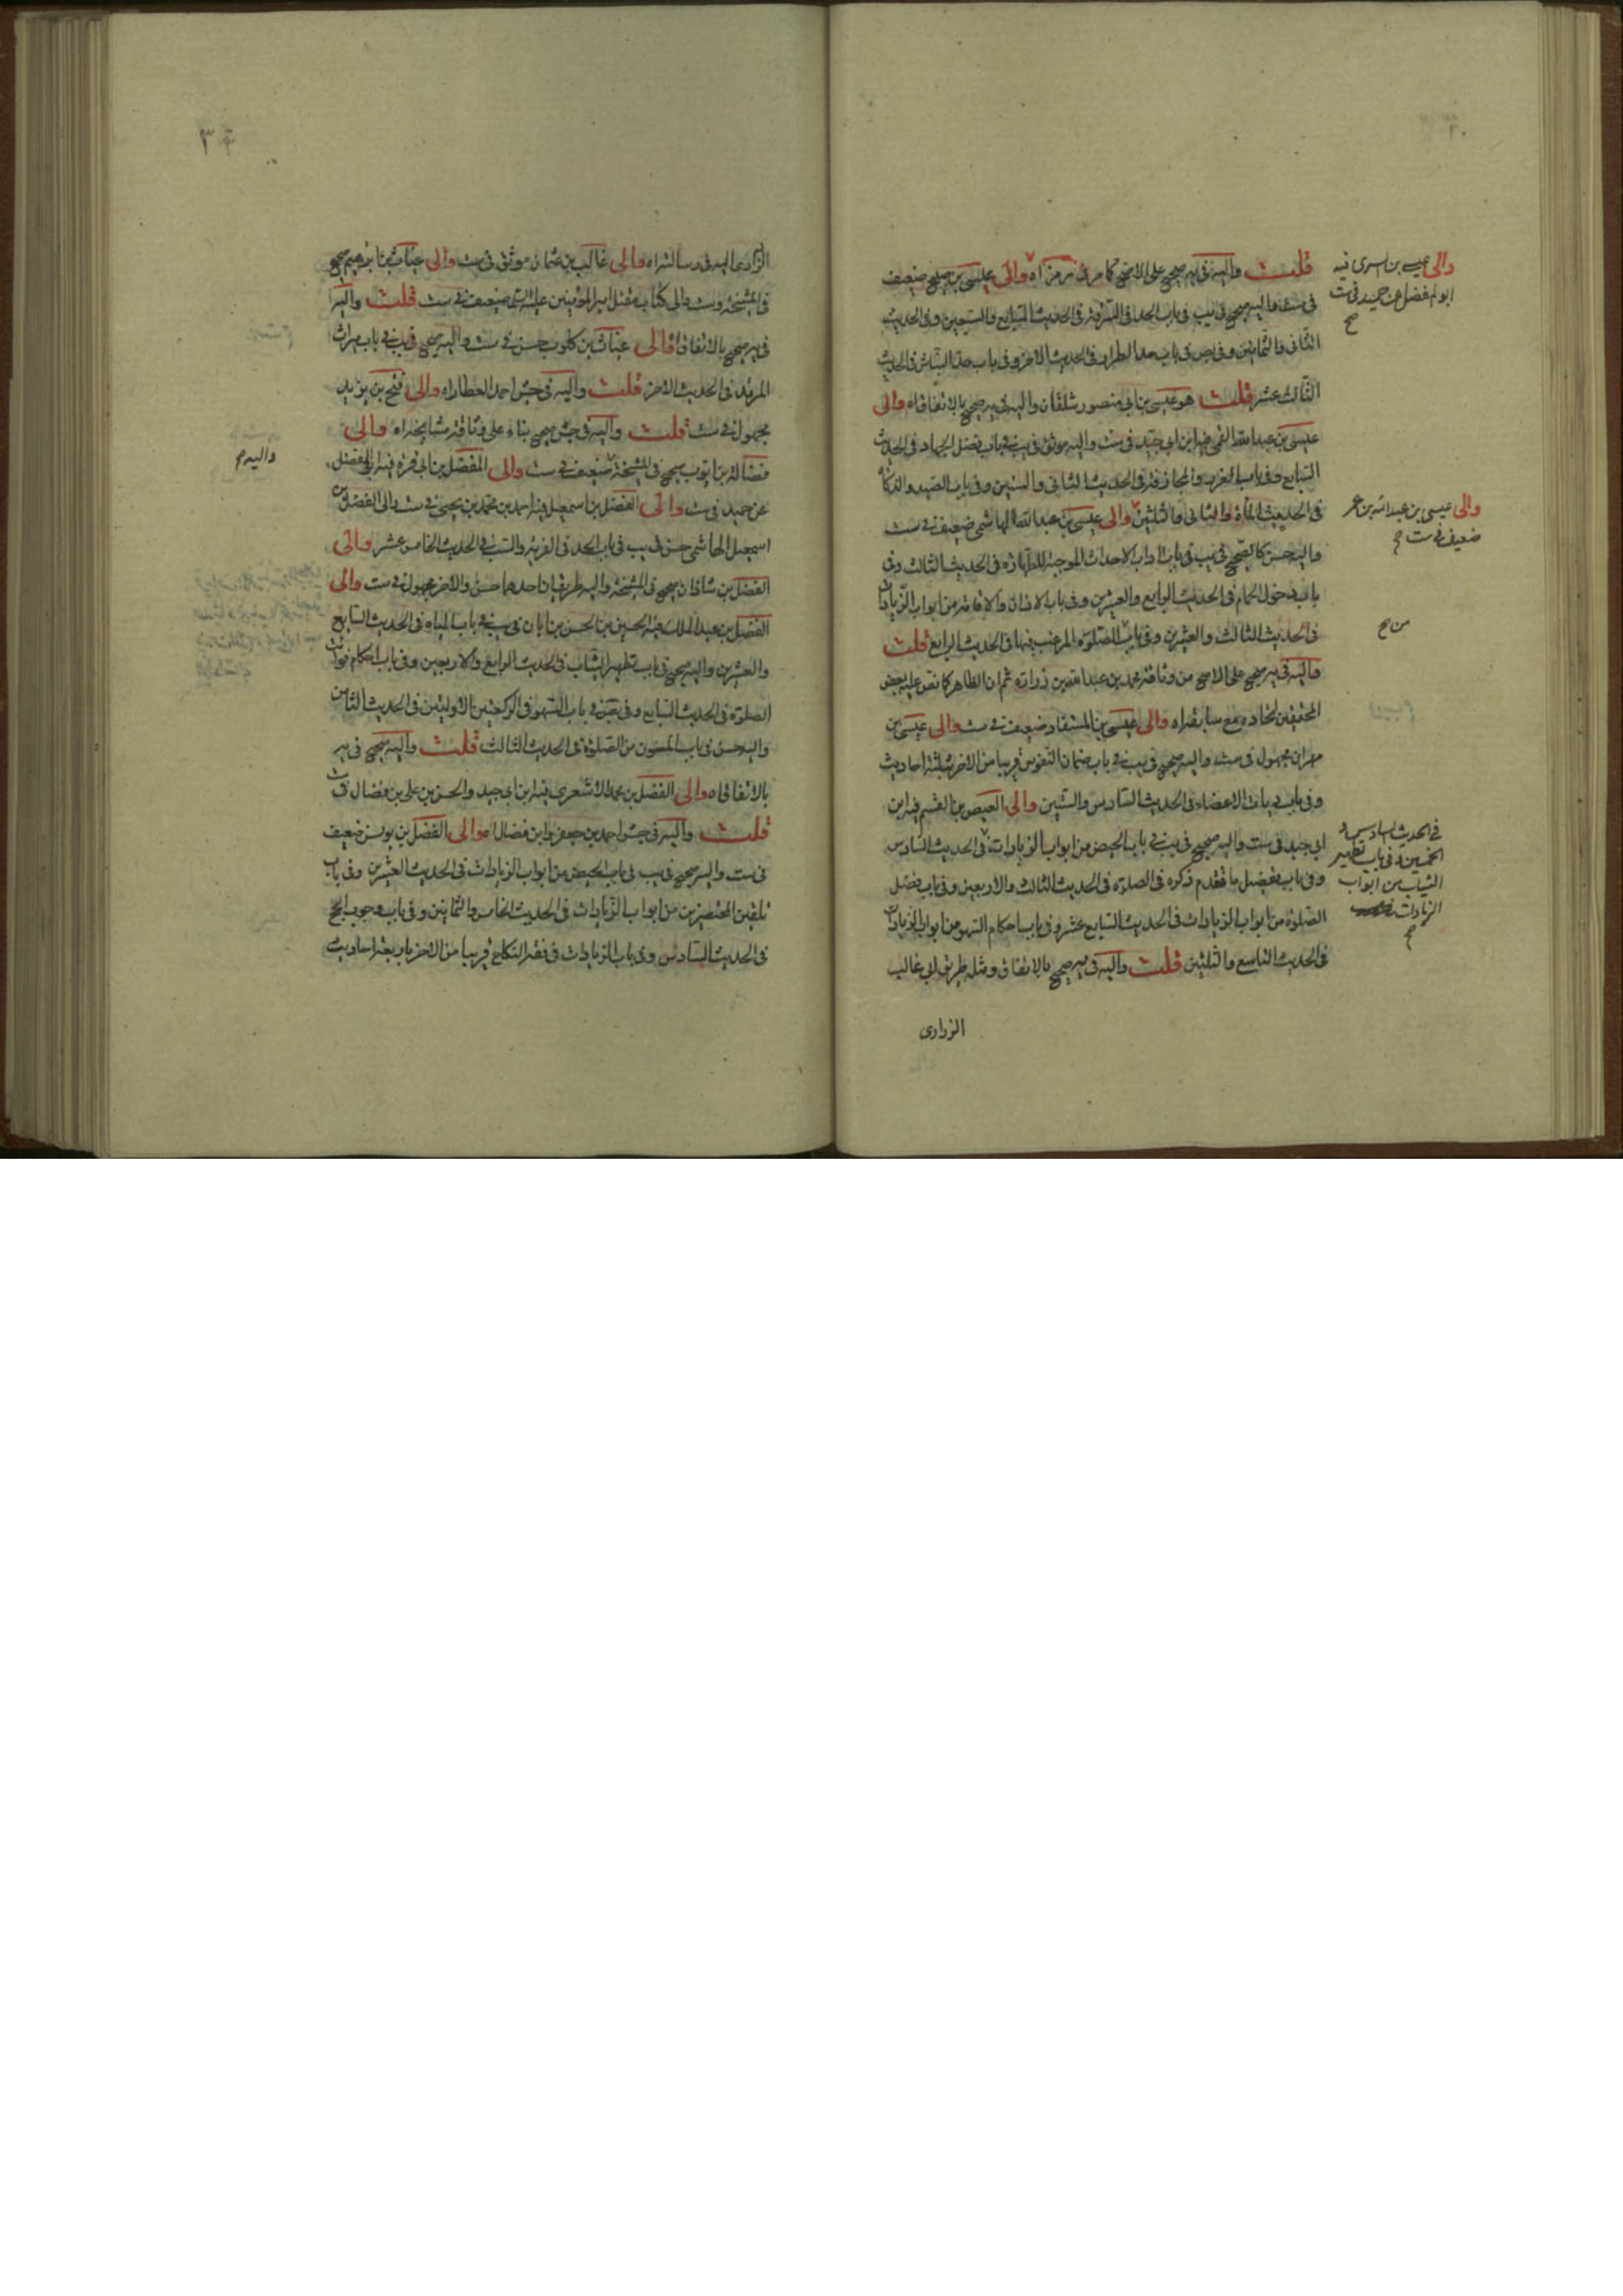 قلت واليه في يه صحيح على الاصح كما مر في ترمز اه والى عيسى بن صبيح ضعيف
في ست واليه صحيح في يب في باب الحد في السرقة في الحديث السابع والسبعين وفي الحديث
الثاني والثمانين وفي بص في باب حد الطرار في الحديث الاخر وفي باب حد النباش في الحديث
الثالث عشر قلت هو عيسى بن ابي منصور شلقان واليه في يه صحيح بالاتفاق اه والى
عيسى بن عبد الله القمي فيه ابن ابي جيد في ست واليه موثق في يب في باب فضل الجهاد في الحديث
السابع وفي باب الغرر والمجازفة في الحديث الثاني والستين وفي باب الصيد والذكاة
في الحديث المأة والثاني والثلثين والى عيسى بن عبد الله الهاشمي ضعيف في ست
واليه حسن كالصحيح في يب في باب اداب الاحداث الموجبة للطهارة في الحديث الثالث وفي
باب دخول الحمام في الحديث الرابع والعشرين وفي باب الاذان والاقامة من ابواب الزيادات
في الحديث الثالث والعشرين وفي باب الصلوة المرغب فيها في الحديث الرابع قلت
واليه في يه صحيح على الاصح من وثاقة محمد بن عبد الله بن زرارة ثم ان الظاهر كما نص عليه بعض
المحققين اتحاده مع سابقه اه والى عيسى بن المستفاد ضعيف في ست والى عيسى بن
مهران مجهول في ست واليه صحيح في يب في باب ضمان النفوس قريبا من الاخر بثلثة احاديث
وفي باب ديات الاعضاء في الحديث السادس والستين والى العيص بن القسم فيه ابن
ابي جيد في ست واليه صحيح في يب في باب الحيض من ابواب الزيادات في الحديث السادس
وفي باب تفصيل ما تقدم ذكره في الصلوة في الحديث الثالث والاربعين وفي باب فضل
الصلوة من ابواب الزيادات في الحديث السابع عشر وفي باب احكام السهو من ابواب الزيادات
في الحديث التاسع والثلثين قلت واليه في يه صحيح بالاتفاق ومثله طريق ابي غالب
الزراري
والى عيسى بن السري فيه
ابو المفضل عن حميد في ست
صح
والى عيسى بن عبد الله بن عمر
ضعيف في ست صح
من صح
في الحديث السادس و
الخمسين وفي باب تطهير
الثياب من ابواب
الزيادات
صح
الزراري اليه في رسالته اه والى غالب بن عثمان موثق في ست والى غياث بن ابرهيم صحيح
في المشيخة وست والى كتاب مقتل امير المؤمنين عليه السلم ضعيف في ست قلت واليه
في يه صحيح بالاتفاق اه والى غياث بن كلوب حسن في ست واليه صحيح في يب في باب ميراث
المرتد في الحديث الاخر قلت واليه في جش احمد العطار اه والى فتح بن يزيد
مجهول في ست قلت واليه في جش صحيح بناء على وثاقة مشايخه اه والى
فضالة بن ايوب صحيح في المشيخة ضعيف في ست والى المفضل بن ابي قرة فيه ابو المفضل
عن حميد في ست والى الفضل بن اسمعيل فيه احمد بن محمد بن يحيى في ست والى الفضل بن
اسمعيل الهاشمي حسن في يب في باب الحد في الفرية والسب في الحديث الخامس عشر والى
الفضل بن شاذان صحيح في المشيخة واليه طريقان احدهما حسن والاخر مجهول في ست والى
الفضل بن عبد الملك فيه الحسين بن الحسن بن ابان في يب في باب المياه في الحديث السابع
والعشرين واليه صحيح في باب تطهير الثياب في الحديث الرابع والاربعين وفي باب احكام فوائت
الصلوة في الحديث السابع وفي بص في باب السهو في الركعتين الاوليتين في الحديث الثامن
واليه حسن في باب المسنون من الصلوة في الحديث الثالث قلت واليه صحيح في يه
بالاتفاق اه والى الفضل بن محمد الاشعري فيه ابن ابي جيد والحسن بن علي بن فضال في ست
قلت واليه في جش احمد بن جعفر وابن فضال اه والى الفضل بن يونس ضعيف
في ست واليه صحيح في يب في باب الحيض من ابواب الزيادات في الحديث العشرين وفي باب
تلقين المحتضرين من ابواب الزيادات في الحديث الخامس والثمانين وفي باب وجوب الحج
في الحديث السادس وفي باب الزيادات في فقه النكاح قريبا من الاخر باربعة احاديث
واليه صح